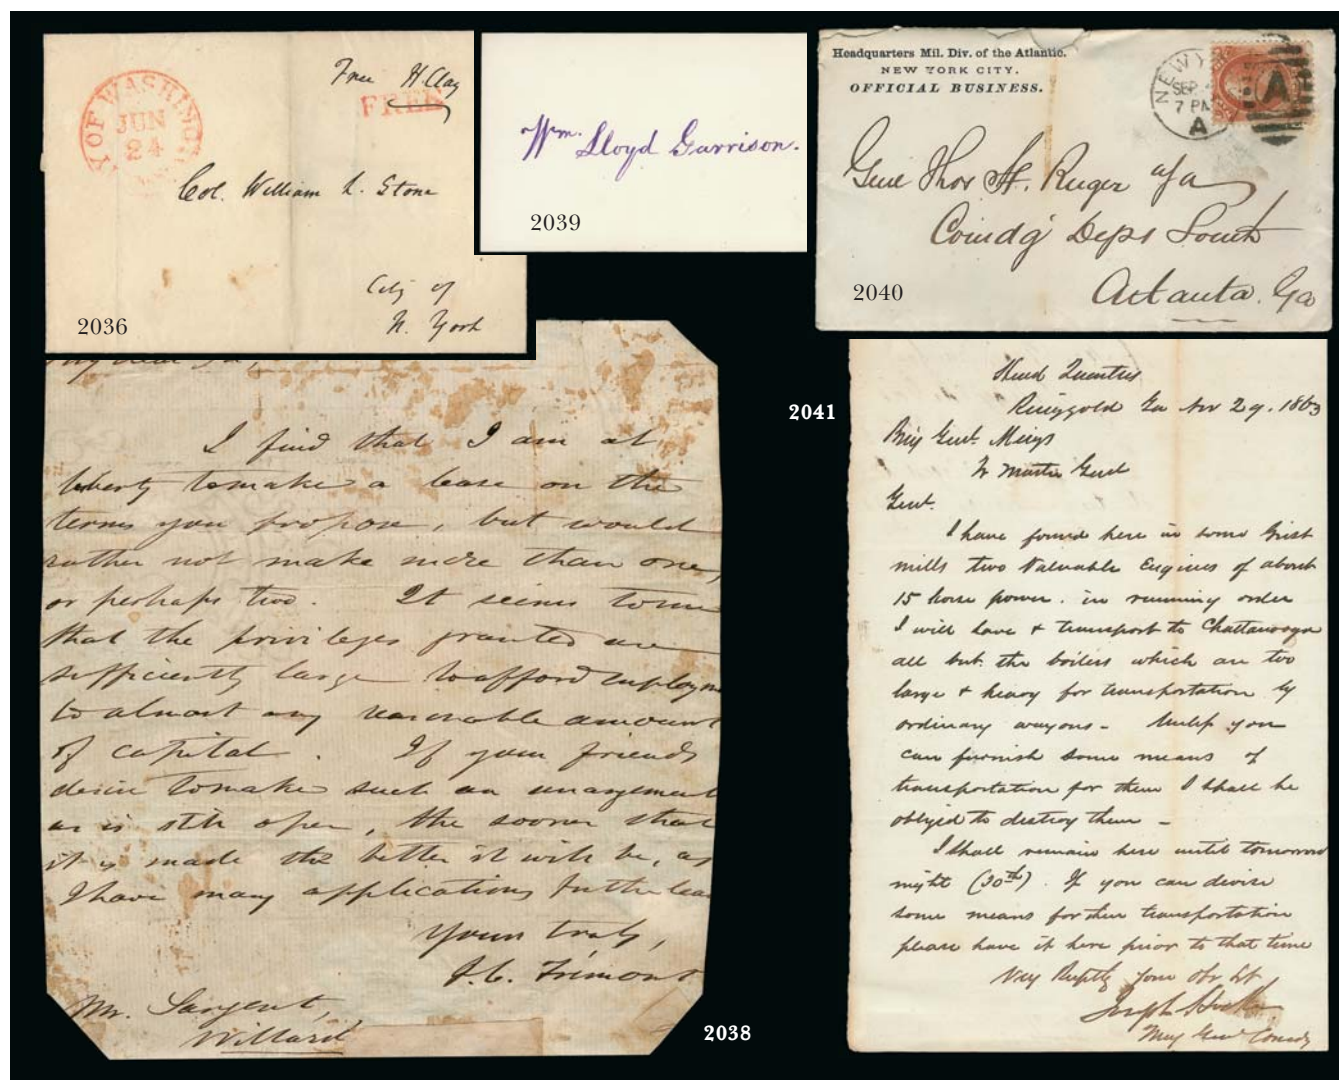 Y OF WASHINGTON
JUN
24
Free H Clay
FREE
Col. William L. Stone
City of
N. York
2036
Wm. Lloyd Garrison.
2039
Headquarters Mil. Div. of the Atlantic.
NEW YORK CITY.
OFFICIAL BUSINESS.
NEW Y
SEP
7 PM
A
A
Genl Thos H. Ruger
Comdg Dept South
Atlanta. Ga
2040
My dear Sir,
I find that I am at
liberty to make a lease on the
terms you propose, but would
rather not make more than one,
or perhaps two. It seems to me
that the privileges granted are
sufficiently large to afford employm
to almost any reasonable amount
of capital. If your friends
desire to make such an arrangement
as is still open, the sooner that
it is made the better it will be, as
I have many applications for the leas
Yours truly,
J. C. Frémont
Mr. Sargent,
Willard
2038
2041
Head Quarters
Ringgold Ga Nov 29. 1863
Brig Genl. Meigs
Qr Master Genl
Genl.
I have found here in some Grist
mills two Valuable Engines of about
15 horse power. in running order
I will have & transport to Chattanooga
all but the boilers which are too
large & heavy for transportation by
ordinary wagons - Unless you
can furnish some means of
transportation for them I shall be
obliged to destroy them -
I shall remain here until tomorrow
night (30th). If you can devise
some means for their transportation
please have it here prior to that time
Very Respectfy Your Obt St
Joseph Hooker
Maj Genl Comdg